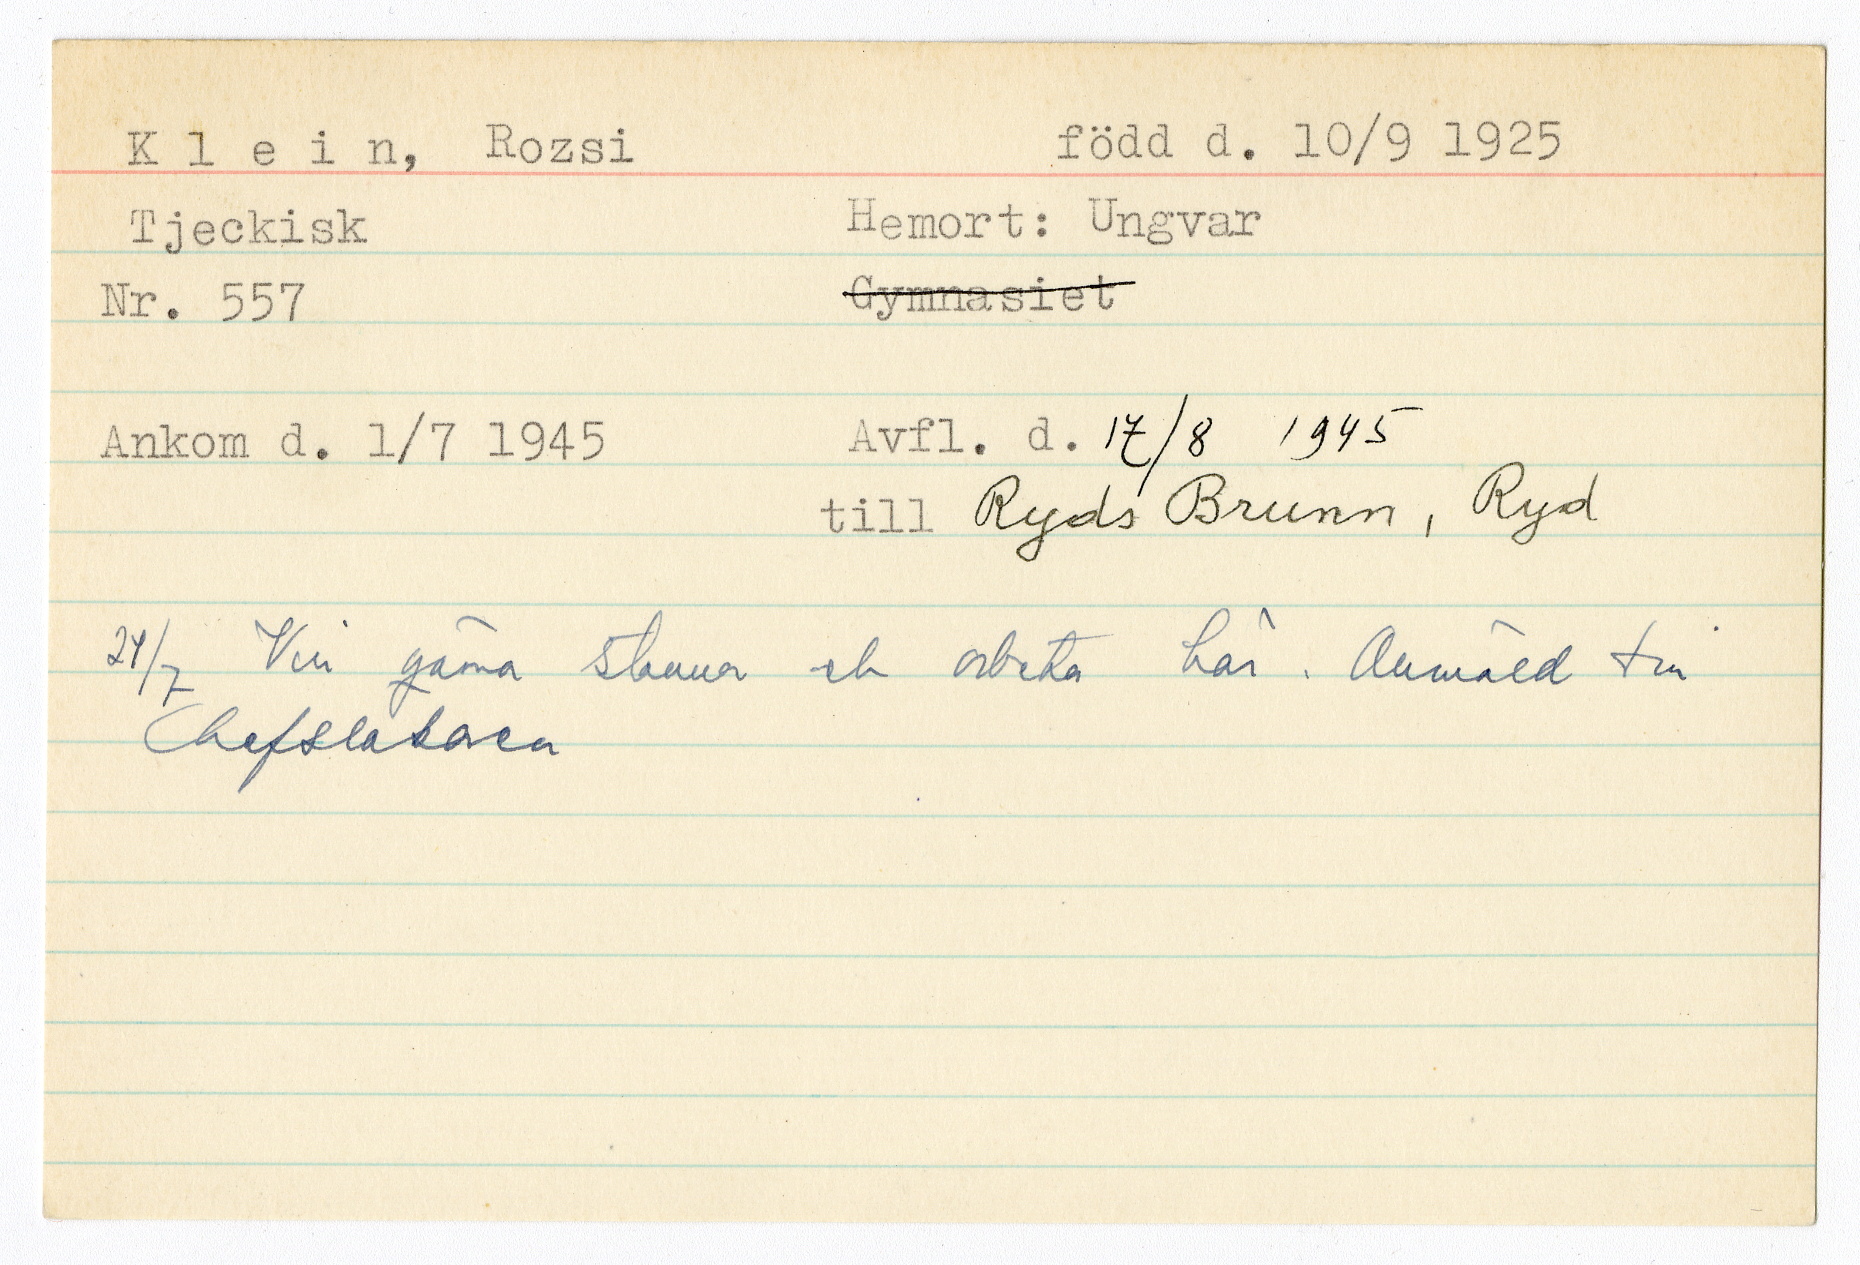 K l e i n, Rozsi född d. 10/9 1925
Tjeckisk Hemort: Ungvar
Nr. 557 Gymnasiet
Ankom d. 1/7 1945 Avfl. d. 17/8 1945
till Ryds Brunn, Ryd
24/7 Vill gärna stanna och arbeta här. Anmäld till
Chefsläkaren